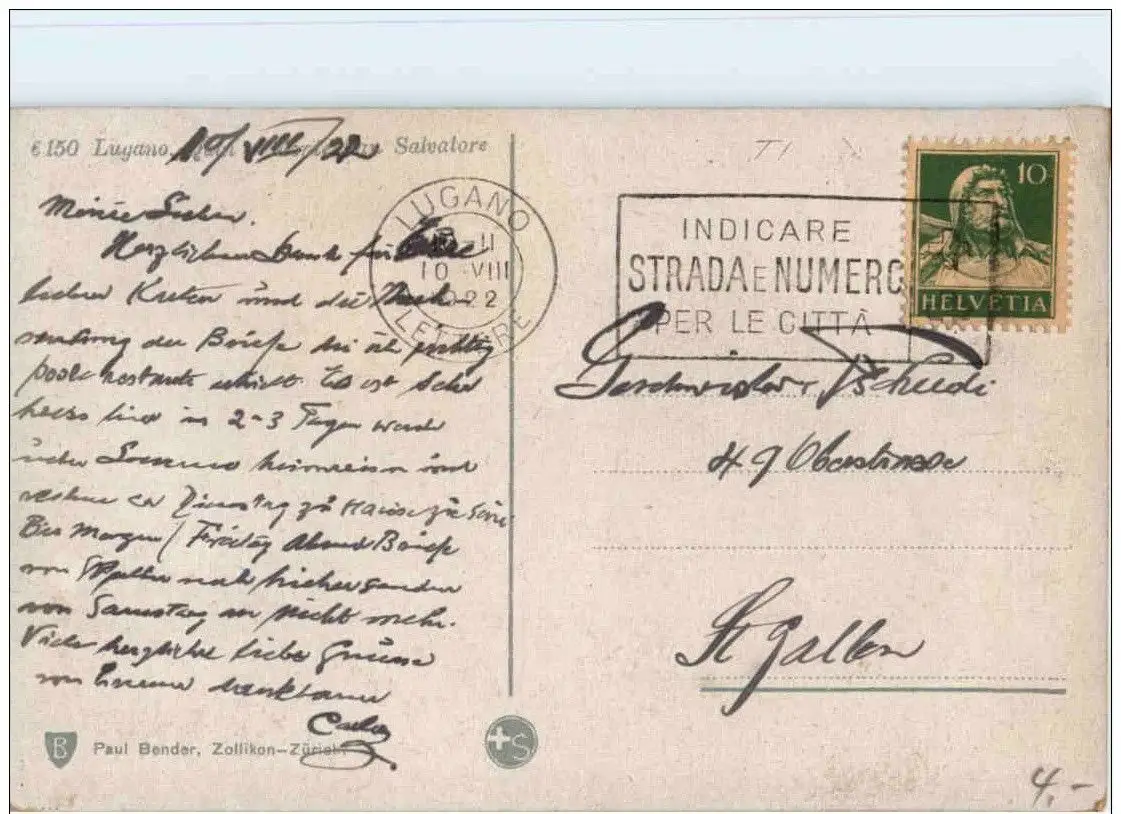 €150 Lugano, Salvatore
10/VIII/22
Meine Lieben.
Herzlichen Dank für Eure
lieben Karten und die Nach-
sendung der Briefe die ich
poste restante erhielt. Es ist sehr
heiss und in 2-3 Tagen werde
ich heimreisen und
Dienstag zu Hause zu sein
Bis Morgen / Freitag Abend Briefe
von nach hieher senden
von Samstag an nicht mehr.
Viele herzliche liebe Grüsse
von Eurem dankbaren
Carlo
B Paul Bender, Zollikon-Zürich
+S
LUGANO
10 VIII
22
LETTERE
INDICARE
STRADA E NUMERO
PER LE CITTÀ
10
HELVETIA
Geschwister Tschudi
49 Oberstrasse
St Gallen
4.-